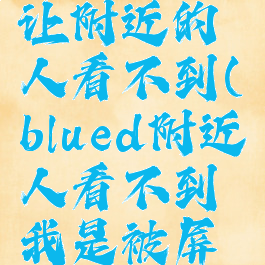 让附近的
人看不到(
blued附近
人看不到
我是被屏